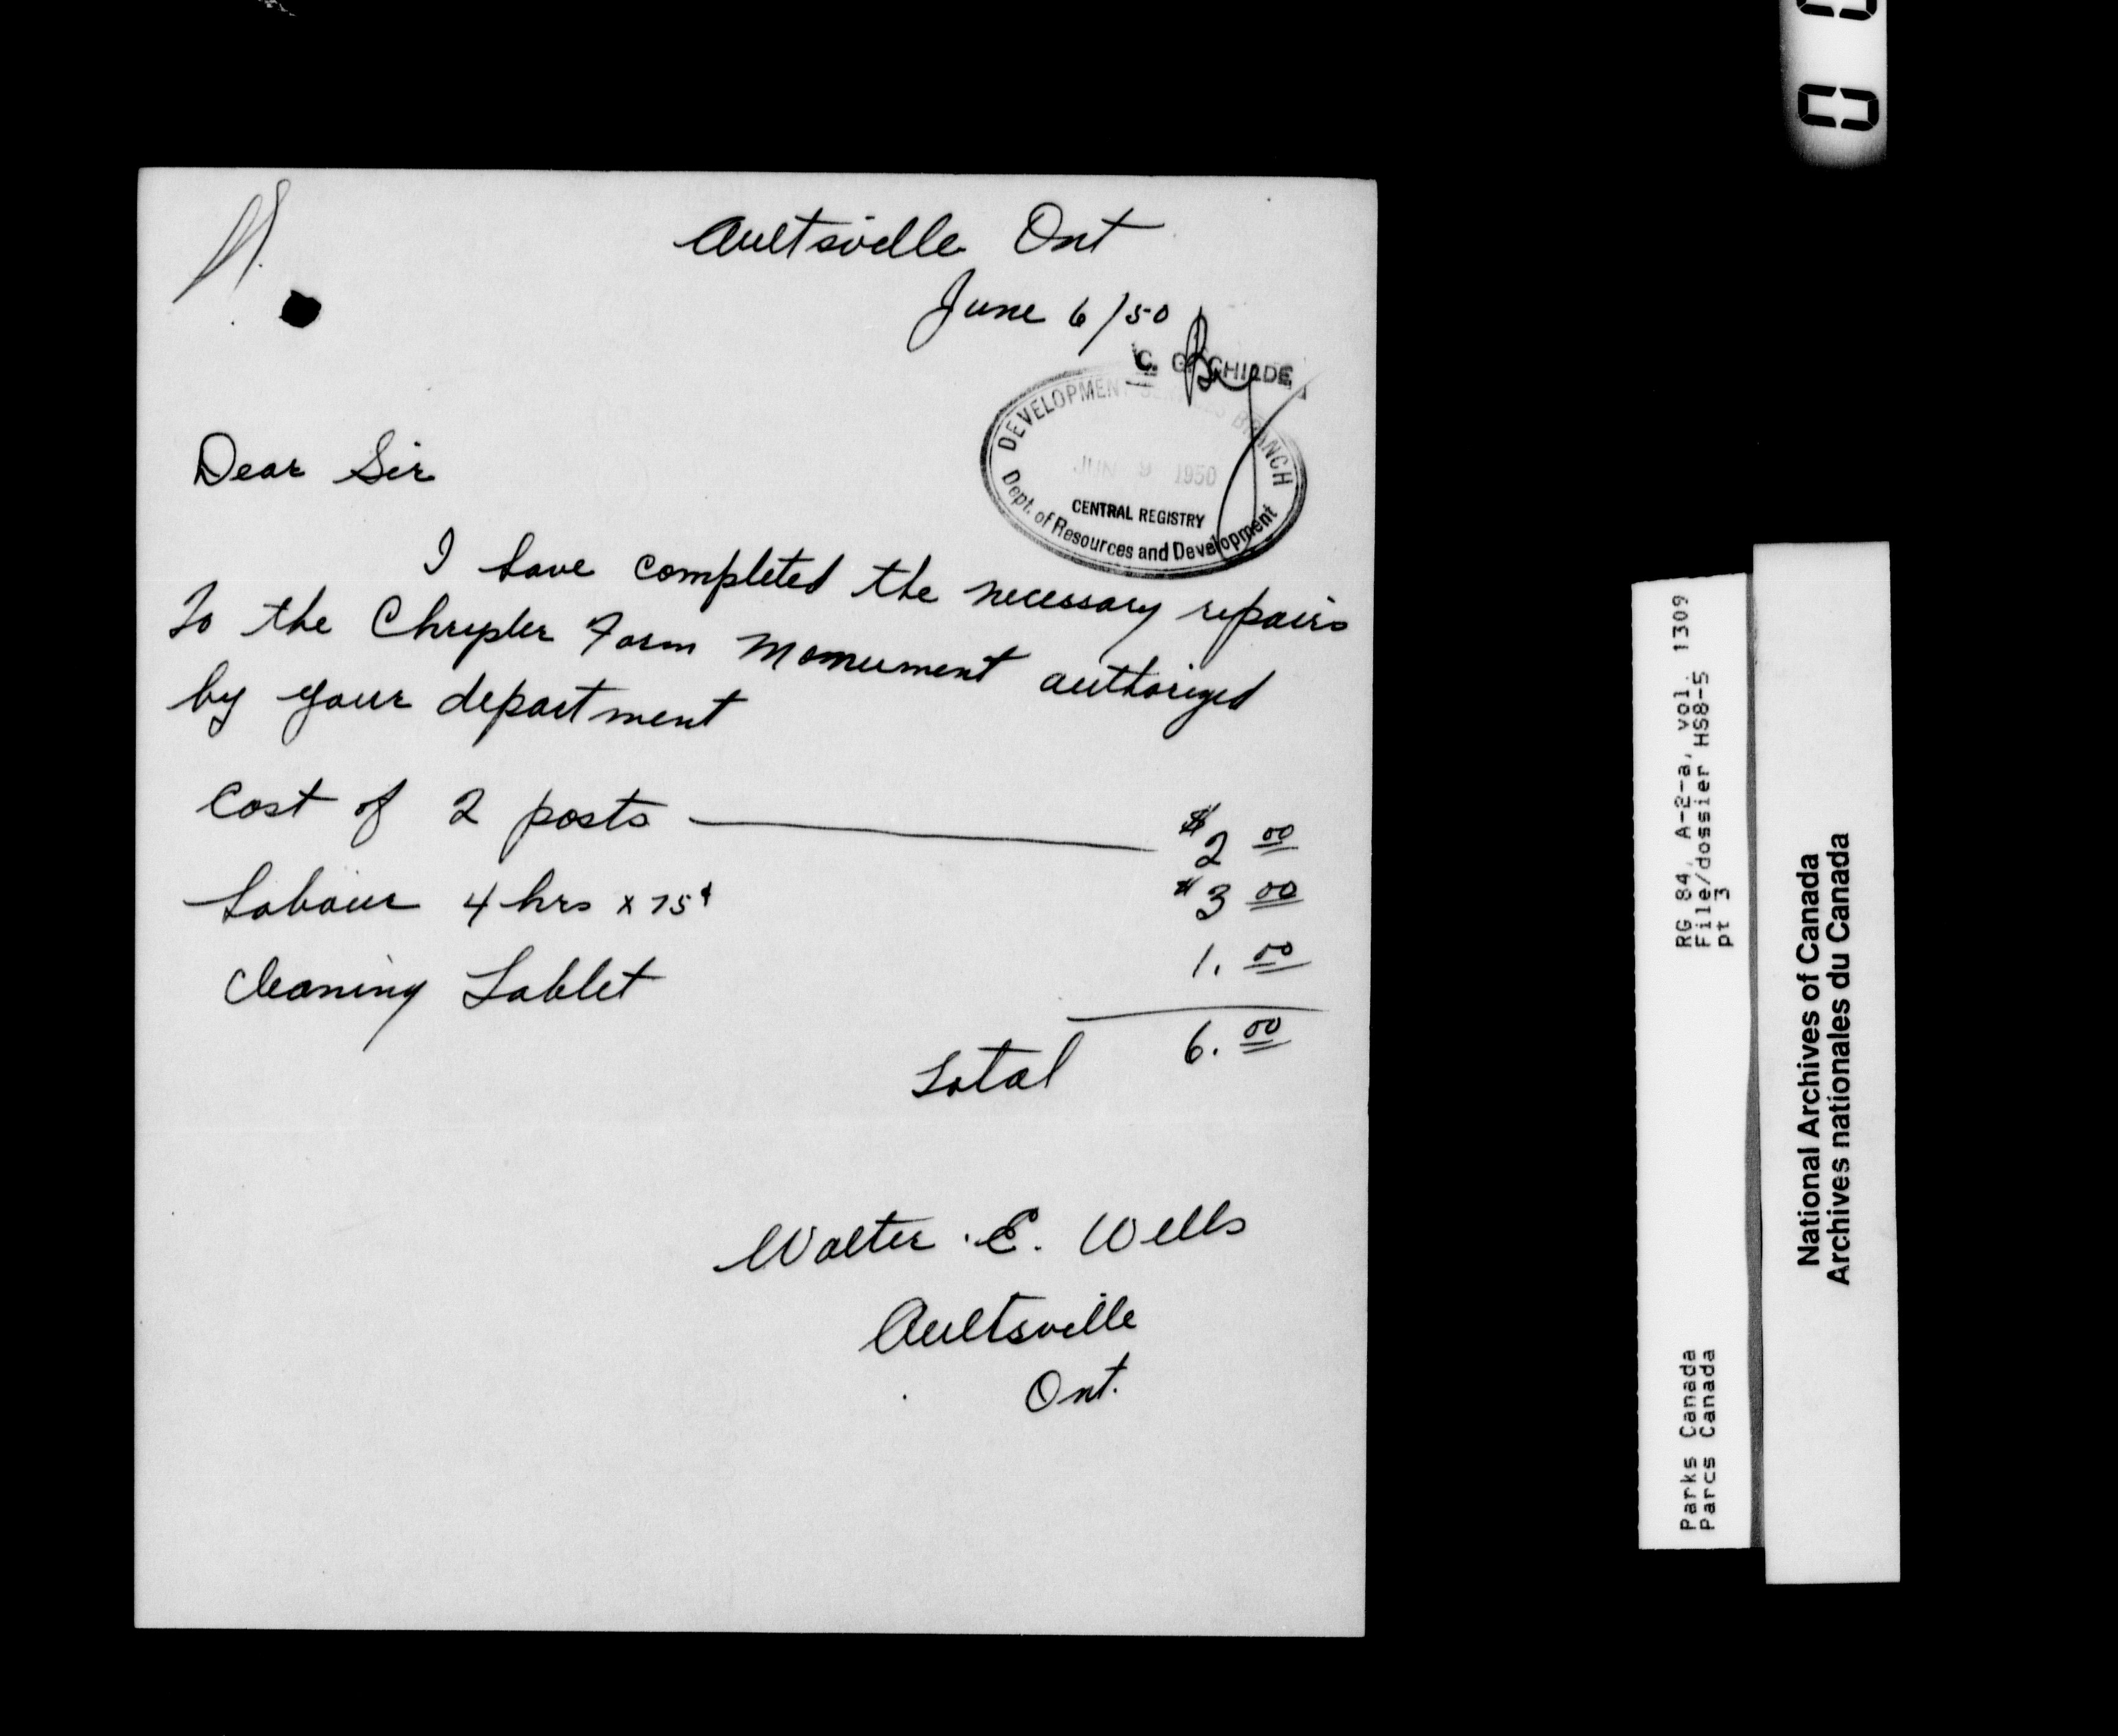 Aultsville Ont
June 6/50
C. G. CHILDE
DEVELOPMENT SERVICES BRANCH
JUN 9 1950
CENTRAL REGISTRY
Dept. of Resources and Development
Dear Sir
I have completed the necessary repairs
To the Chrysler Farm Monument authorized
by your department
Cost of 2 posts $2 00
Labour 4 hrs x 75¢ $3 00
Cleaning Tablet 1. 00
Total 6. 00
Walter E. Wells
Aultsville
Ont.
RG 84, A-2-a, vol. 1309
File/dossier HS8-5
pt 3
Parks Canada
Parcs Canada
National Archives of Canada
Archives nationales du Canada